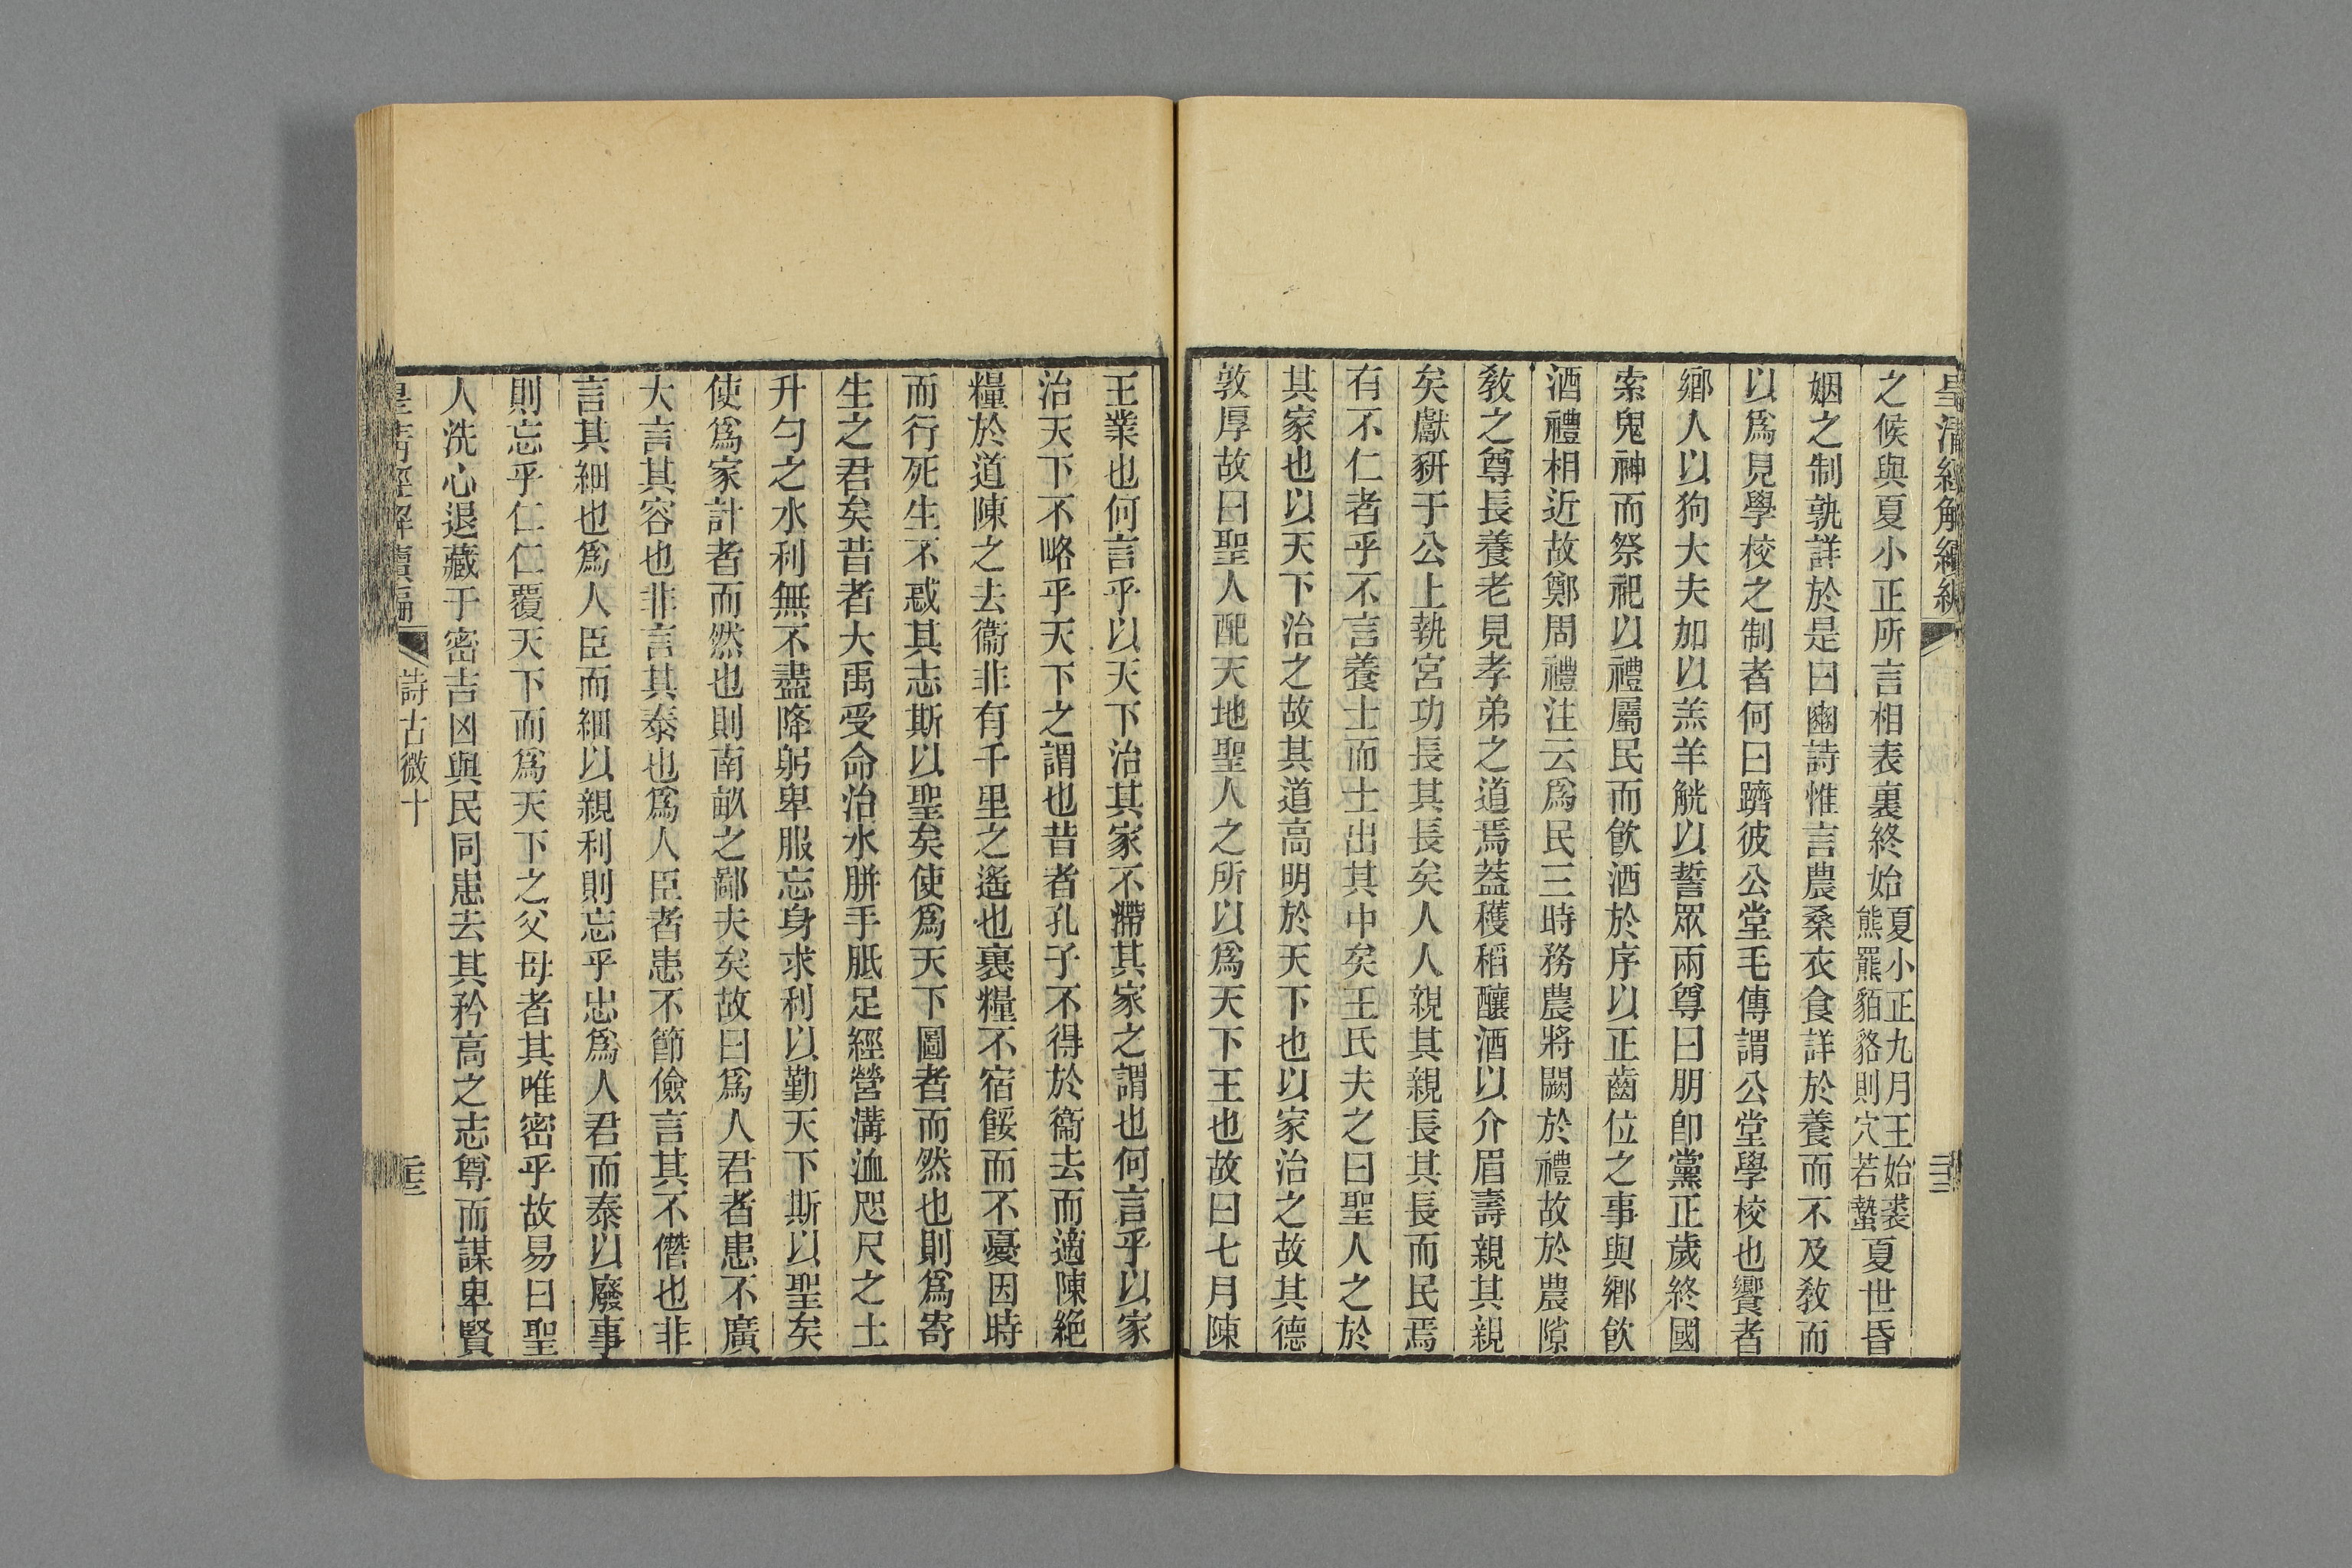 皇清經解續編
之候與夏小正所言相表裏終始夏小正九月王始裘熊羆貊貉則穴若蟄夏世昏
姻之制孰詳於是曰豳詩惟言農桑衣食詳於養而不及敎而
以爲見學校之制者何曰躋彼公堂毛傳謂公堂學校也饗者
鄉人以狗大夫加以羔羊觥以誓眾兩尊曰朋卽黨正歲終國
索鬼神而祭祀以禮屬民而飮酒於序以正齒位之事與鄉飮
酒禮相近故鄭周禮注云爲民三時務農將闕於禮故於農隙
敎之尊長養老見孝弟之道焉蓋穫稻釀酒以介眉壽親其親
矣獻豜于公上執宮功長其長矣人人親其親長其長而民焉
有不仁者乎不言養士而士出其中矣王氏夫之曰聖人之於
其家也以天下治之故其道高明於天下也以家治之故其德
敦厚故曰聖人配天地聖人之所以爲天下王也故曰七月陳
王業也何言乎以天下治其家不滯其家之謂也何言乎以家
治天下不略乎天下之謂也昔者孔子不得於衞去而適陳絶
糧於道陳之去衞非有千里之遙也裹糧不宿餒而不憂因時
而行死生不惑其志斯以聖矣使爲天下圖者而然也則爲寄
生之君矣昔者大禹受命治水胼手胝足經營溝洫咫尺之土
升勺之水利無不盡降躬卑服忘身求利以勤天下斯以聖矣
使爲家計者而然也則南畝之鄙夫矣故曰爲人君者患不廣
大言其容也非言其泰也爲人臣者患不節儉言其不僭也非
言其細也爲人臣而細以親利則忘乎忠爲人君而泰以廢事
則忘乎仁仁覆天下而爲天下之父母者其唯密乎故易曰聖
人洗心退藏于密吉凶與民同患去其矜高之志尊而謀卑賢
皇清經解續編 詩古微十